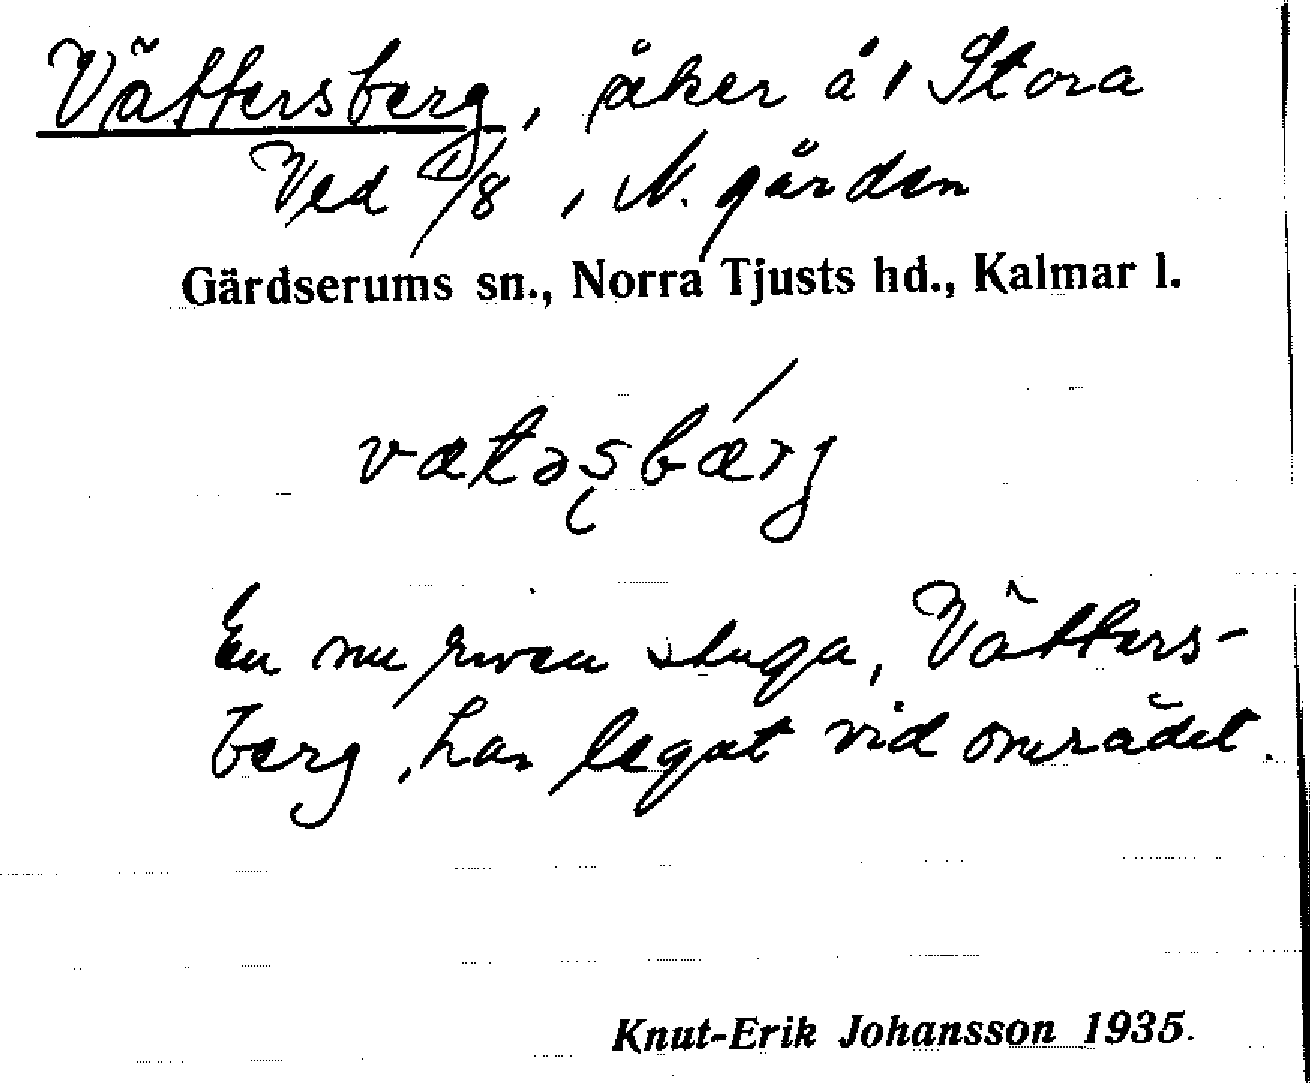 Vättersberg, åker å 1 Stora
Ved 1/8, N. gården
Gärdserums sn., Norra Tjusts hd., Kalmar l.
vætəsbærg
En nu riven stuga, Vätters-
berg, har legat vid området.
Knut-Erik Johansson 1935.